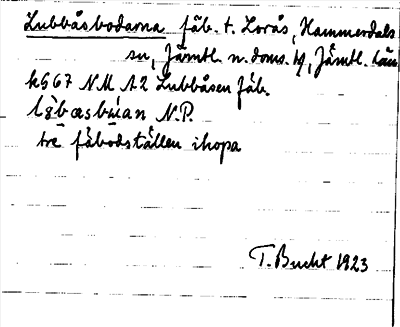 Lubbåsbodarna fäb. t. Lorås, Hammerdals
sn, Jämtl. n. doms. tg, Jämtl. län
k667 N.M A2 Lubbåsen fäb.
N.P.
tre fäbodställen ihopa
T. Bucht 1923